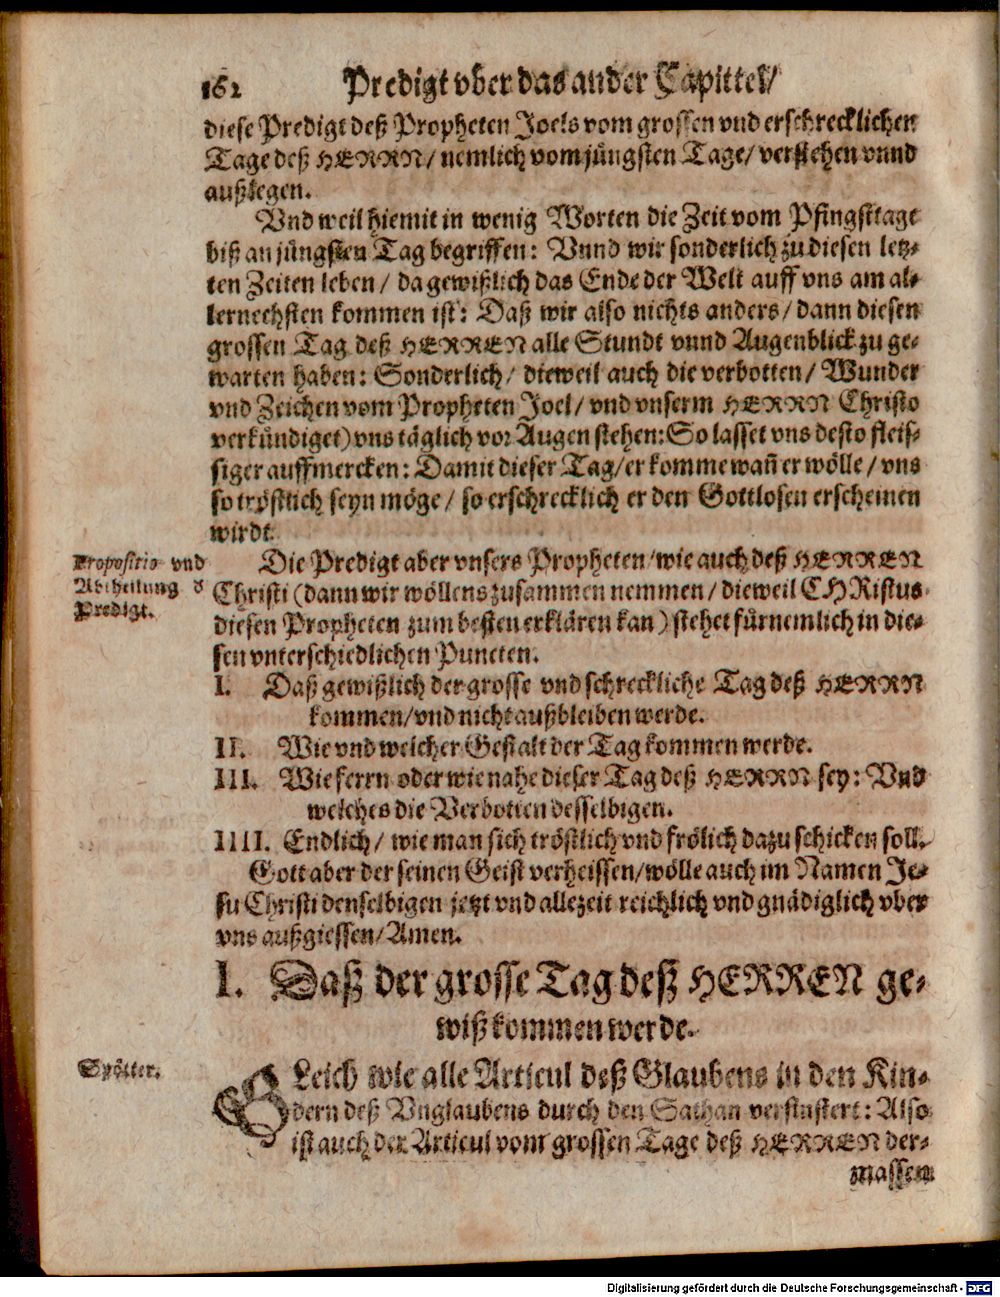 162 Predigt vber das ander Capittel/
diese Predigt deß Propheten Joels vom grossen vnd erschrecklichen
Tage deß HERRN/ nemlich vom jüngsten Tage/ verstehen vnnd
außlegen.
Vnd weil hiemit in wenig Worten die Zeit vom Pfingsttage
biß an jüngsten Tag begriffen: Vnnd wir sonderlich zu diesen letz-
ten Zeiten leben/ da gewißlich das Ende der Welt auff vns am al-
lernechsten kommen ist: Daß wir also nichts anders/ dann diesen
grossen Tag deß HERREN alle Stundt vnnd Augenblick zu ge-
warten haben: Sonderlich/ dieweil auch die verbotten/ Wunder
vnd Zeichen vom Propheten Joel/ vnd vnserm HERRN Christo
verkündiget) vns täglich vor Augen stehen: So lasset vns desto fleis-
siger auffmercken: Damit dieser Tag/ er komme wañ er wölle/ vns
so tröstlich seyn möge/ so erschrecklich er den Gottlosen erscheinen
wirdt.
Propositio vnd
Abtheilung d
Predigt.
Die Predigt aber vnsers Propheten/ wie auch deß HERREN
Christi (dann wir wöllens zusammen nemmen/ dieweil CHRistus
diesen Propheten zum besten erklären kan) stehet fürnemlich in die-
sen vnterschiedlichen Puncten.
I. Daß gewißlich der grosse vnd schreckliche Tag deß HERRN
kommen/ vnd nicht außbleiben werde.
II. Wie vnd welcher Gestalt der Tag kommen werde.
III. Wie ferrn oder wie nahe dieser Tag deß HERRN sey: Vnd
welches die Verbotten desselbigen.
IIII. Endlich/ wie man sich tröstlich vnd frölich dazu schicken soll.
Gott aber der seinen Geist verheissen/ wölle auch im Namen Je-
su Christi denselbigen jetzt vnd allezeit reichlich vnd gnädiglich vber
vns außgiessen/ Amen.
I. Daß der grosse Tag deß HERREN ge-
wiß kommen werde.
Spötter.
GLeich wie alle Articul deß Glaubens in den Kin-
dern deß Vnglaubens durch den Sathan verfinstert: Also
ist auch der Articul vom grossen Tage deß HERREN der-
massen
Digitalisierung gefördert durch die Deutsche Forschungsgemeinschaft - DFG